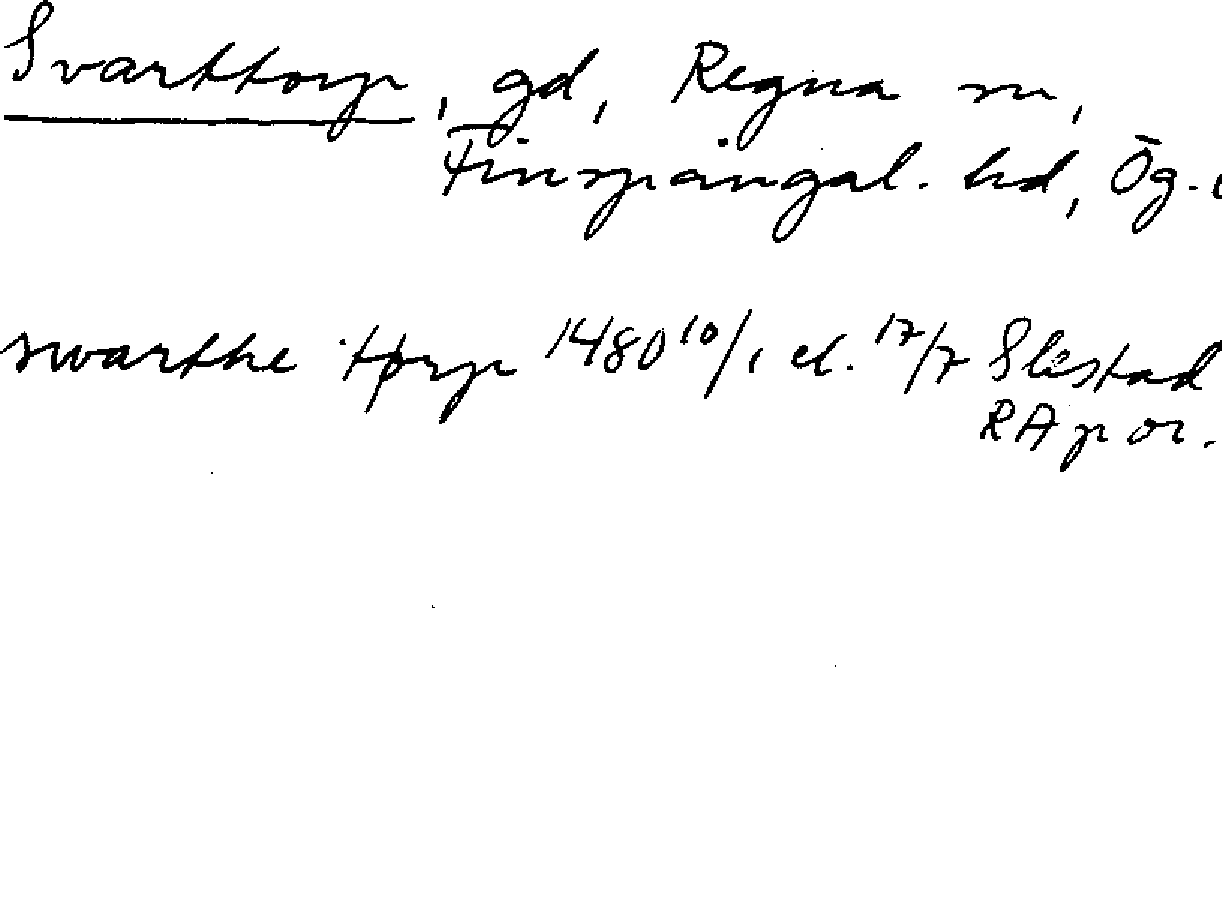 Svarttorp, gd, Regna sn,
Finspångal. hd, Ög.
swarthe tørp 1480 10/1 el. 17/7 Slestad
RA p or.